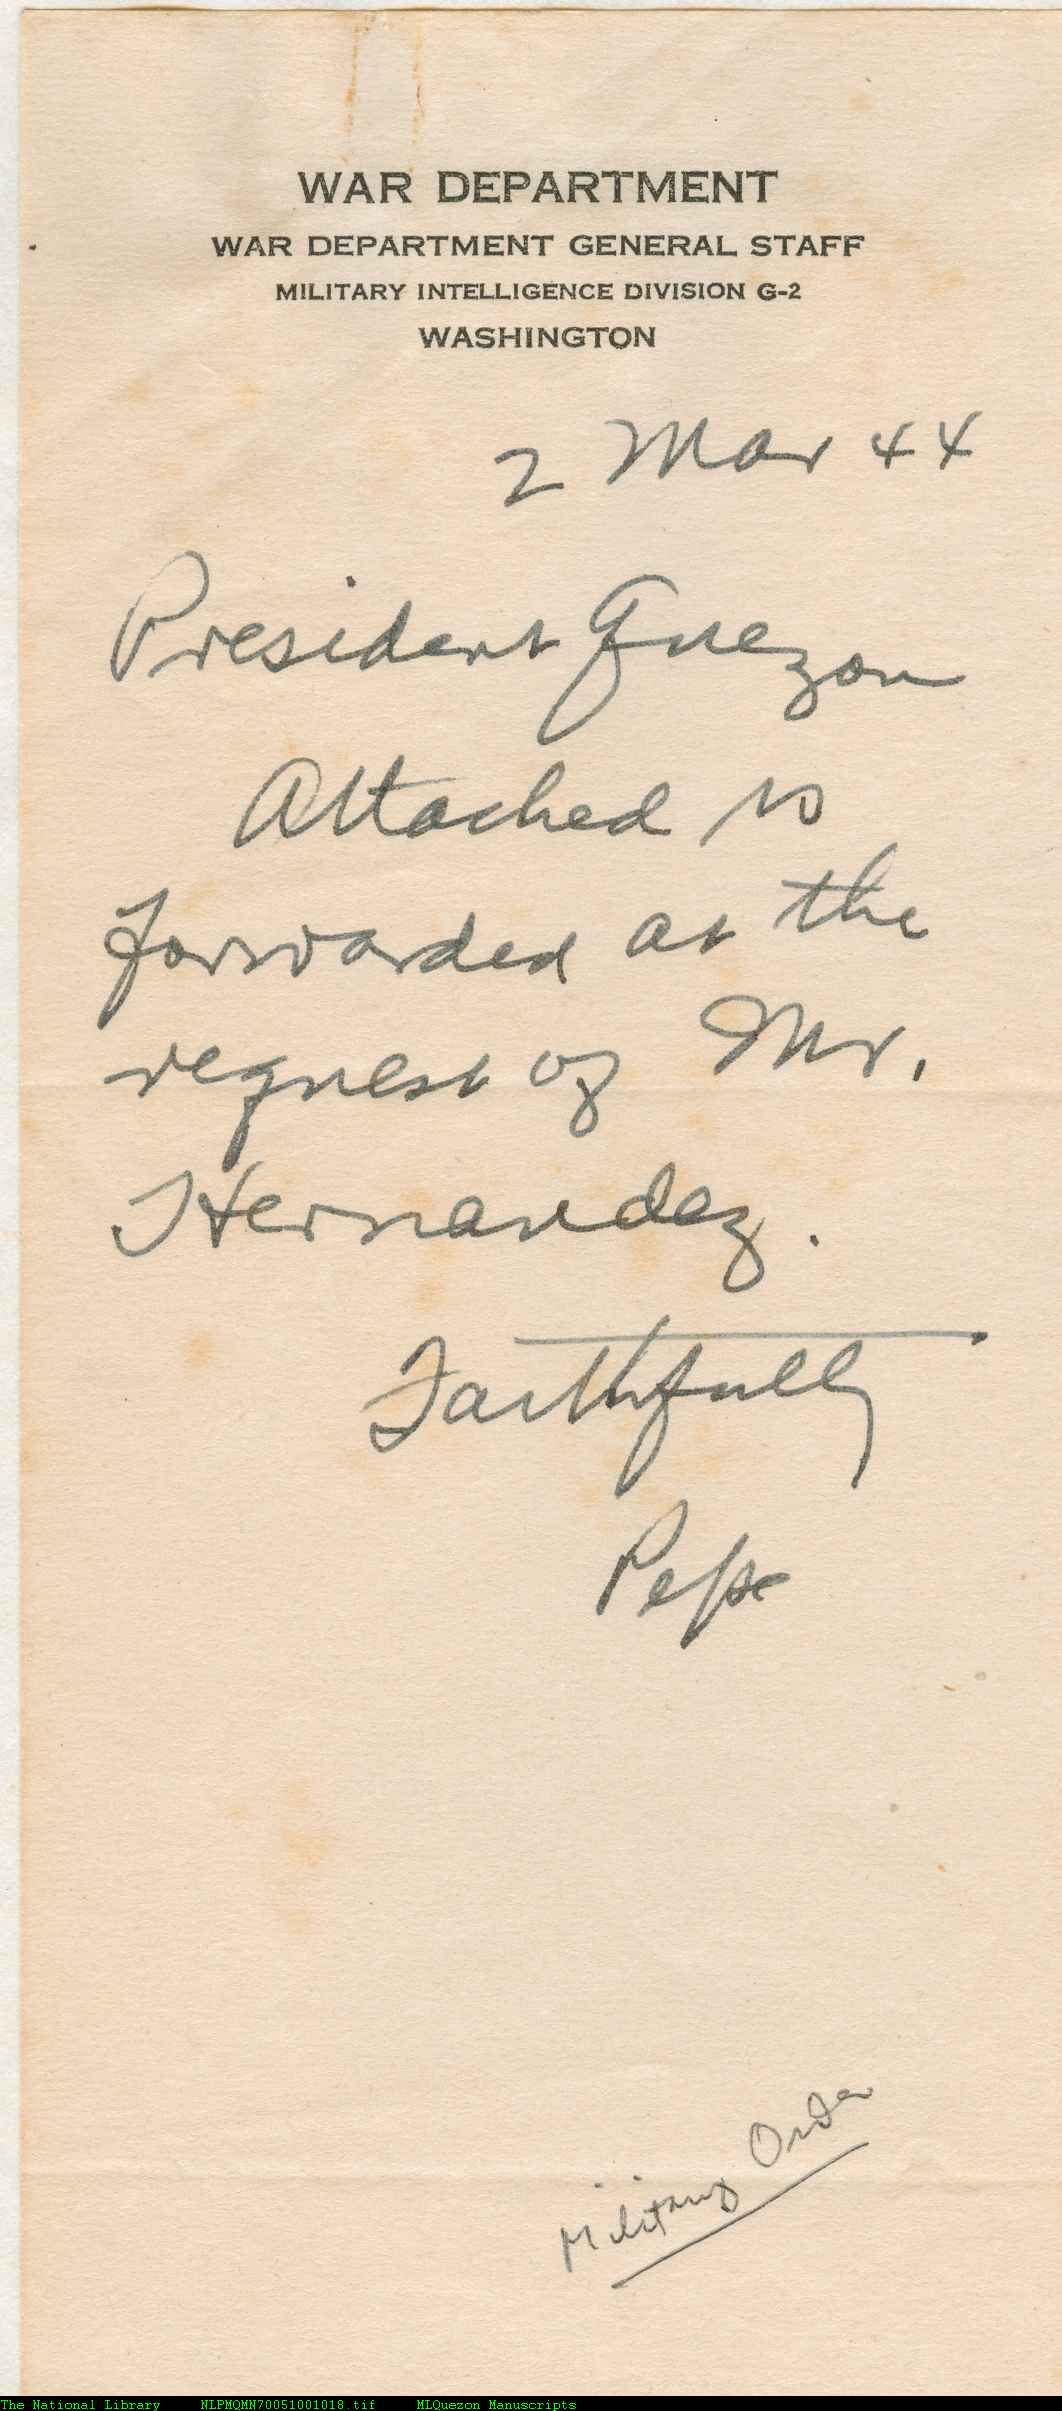 WAR DEPARTMENT
WAR DEPARTMENT GENERAL STAFF
MILITARY INTELLIGENCE DIVISION G-2
WASHINGTON
2 Mar 44
President Quezon
Attached is
forwarded at the
request of Mr.
Hernandez.
Faithfully
Pepe
Military Order
The National Library NLPMQMN70051001018.tif MLQuezon Manuscripts